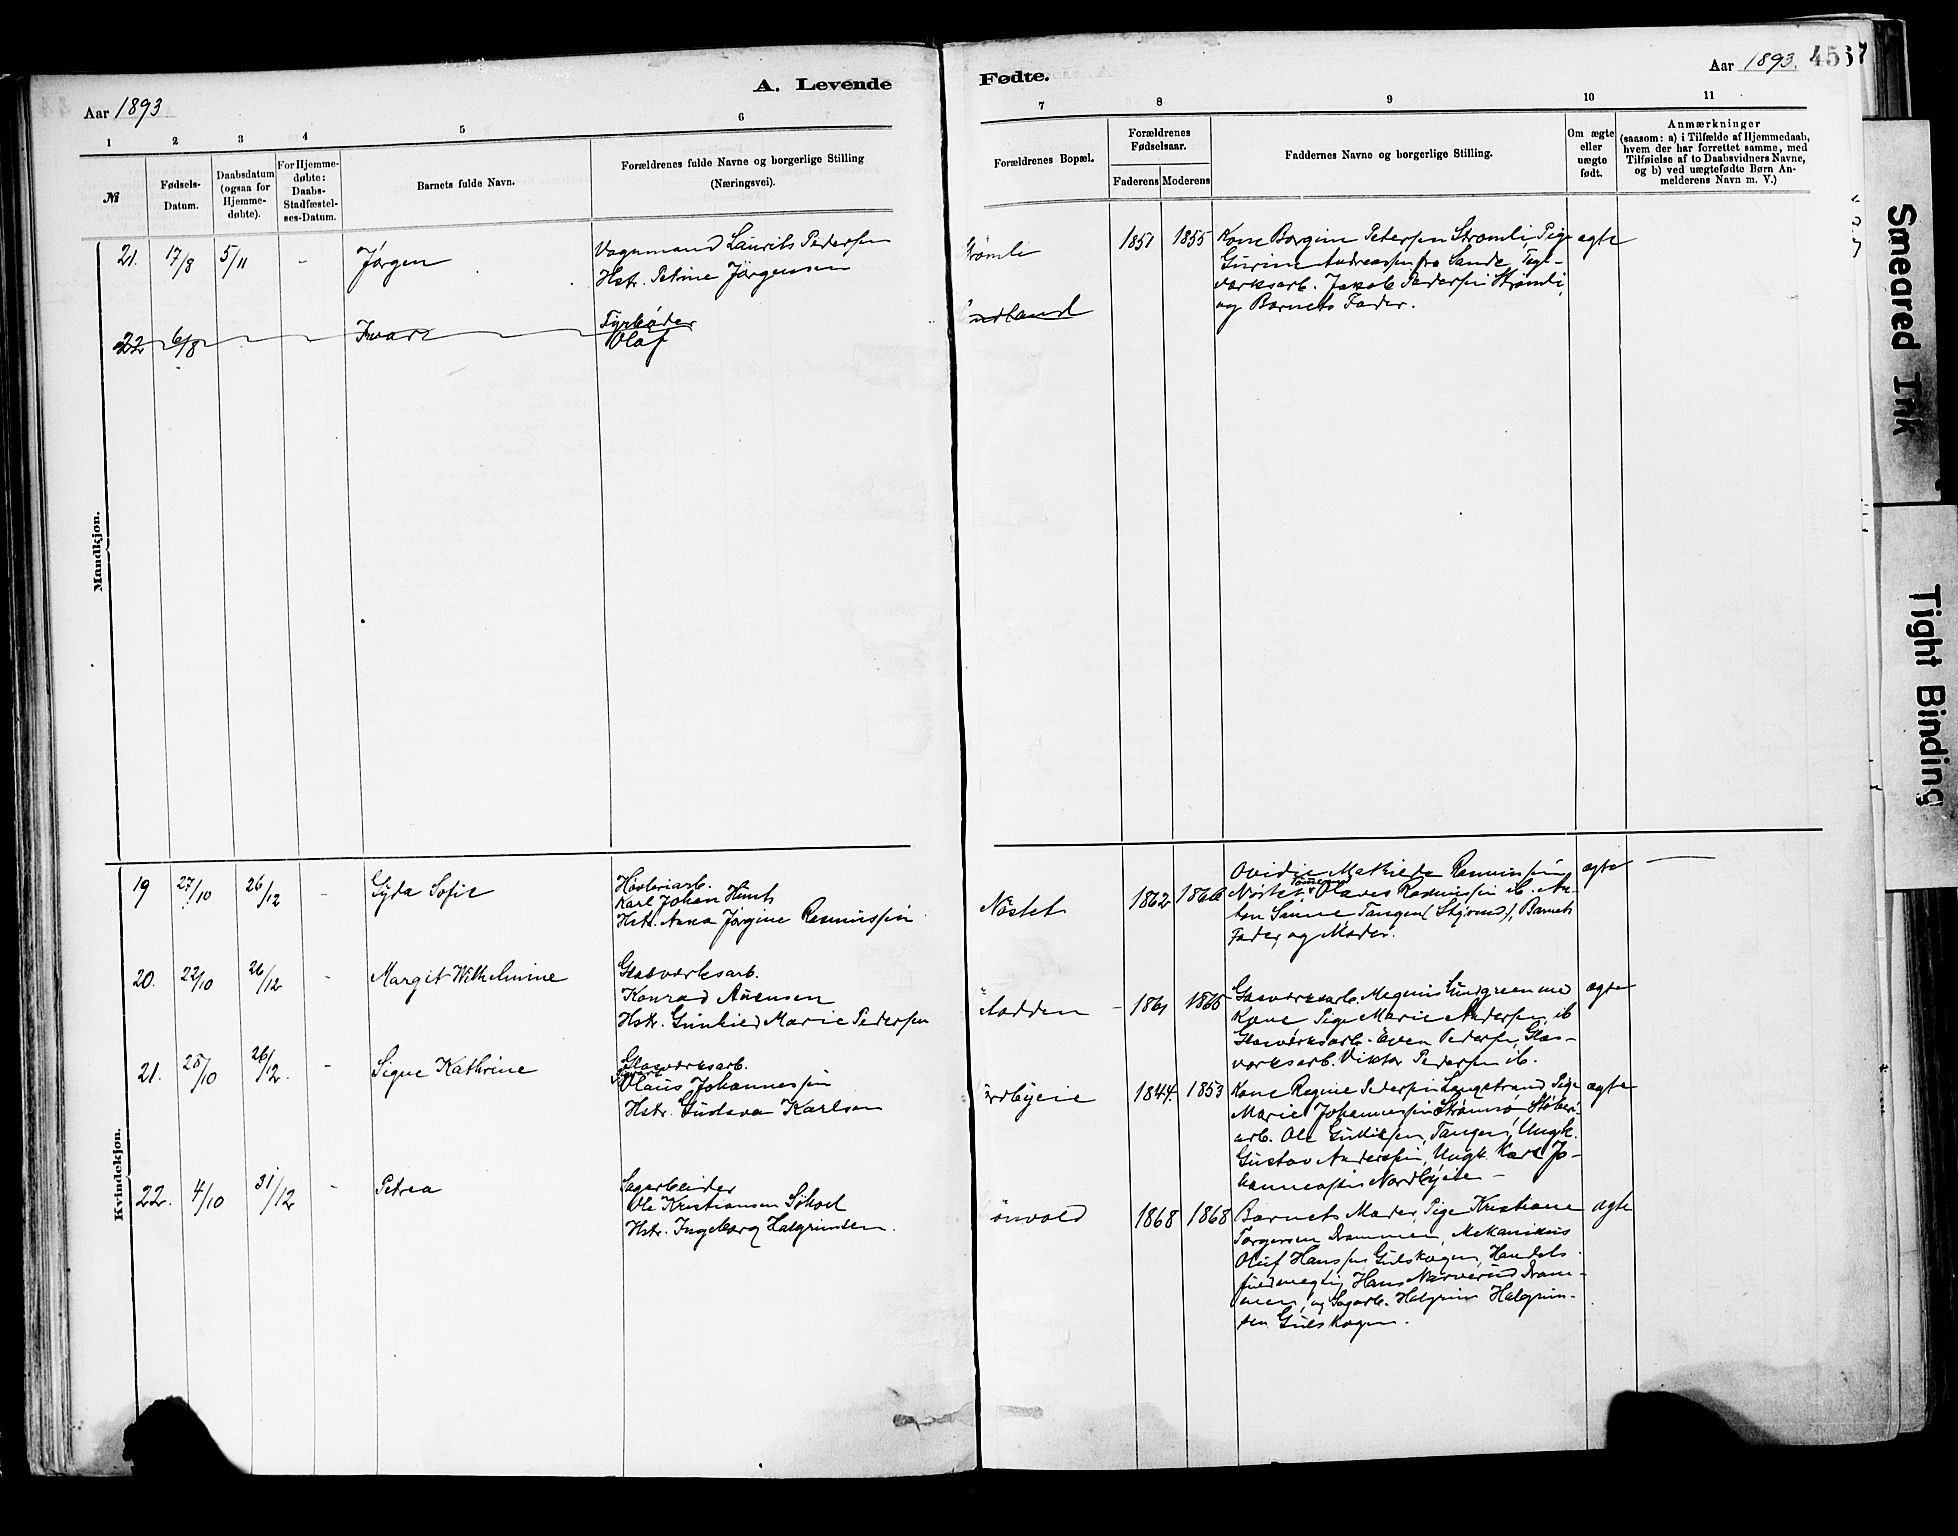 Aar 1893
A. Levende
Fødte.
Aar 1893.
4567
1 2 3 4 5 6 7 8 9 10 11
№
Fødsels-
Datum.
Daabsdatum
(ogsaa for
Hjemme-
døbte).
For Hjemme-
døbte:
Daabs-
Stadfæstel-
ses-Datum.
Barnets fulde Navn.
Forældrenes fulde Navne og borgerlige Stilling
(Næringsvei).
Forældrenes Bopæl.
Forældrenes
Fødselsaar.
Faderens Moderens
Faddernes Navne og borgerlige Stilling.
Om ægte
eller
uægte
født.
Anmærkninger
(saasom: a) i Tilfælde af Hjemmedaab,
hvem der har forrettet samme, med
Tilføielse af to Daabsvidners Navne,
og b) ved uægtefødte Børn An-
melderens Navn m. V.)
Mandkjøn.
21. 17/8 5/11 - Jørgen
Vognmand Laurits Pedersen
Hstr. Petrine Jørgensen
Strømli 1851 1855
Kone Borgine Pedersen Strømli, Pige
Gurine Andreassen fra Sande, Tegl-
værksarb. Jakob Pedersen Strømli,
og Barnets Fader.
ægte
22 6/8 Ivar
Fyrbøder
Olaf
ndland
Kvindekjøn.
19 27/10 26/12 - Gyda Sofie
Høvleriarb.
Karl Johan
Hstr. Anna Jørgine Rasmussen
Nøstet 1862 1866
Ovidie Rasmussen
Nøstet, Olaves Rasmussen ib. An-
ton Sanne, Tangen (Styrmd), Barnets
Fader og Moder.
ægte
20. 22/10 26/12 - Margit Wilhelmine
Glasværksarb.
Konrad Auensen
Hstr. Marie Pedersen
odden 1861 1865
Glasværksarb. Magnus Lundgreen med
Kone Pige Marie Andersen ib
Glasværksarb. Even Pedersen, Glas-
værksarb. Viktor Pedersen ib.
ægte
21. 25/10 26/12. - Signe Kathrine
Glasværksarb.
Olaus Johannessen
Hstr. Gustava Karlsen
ordbyeie 1844. 1853
Kone Regine Pedersen Langstrand Pige
Marie Johannessen Strømsø Støberi-
arb. Ole Gulliksen, Tangen, Ungk.
Gustav Andersen, Ungk Karl Jo-
hannessen Nordbyeie -
ægte
22. 4/10 31/12 - Petrea
Sagarbeider
Ole Kristiansen
Hstr. Ingeborg Halgrimsen.
ønvold 1868 1868
Barnets Moder, Pige Kristiane
Torgersen Drammen, Mekanikus
Oluf Hanssen Gulskogen, Handels
fuldmægtig Hans Narverud Dram-
men, og Sagarb. Halgrim Halgrim-
sen Gulskogen.
ægte
Smeared Ink
Tight Binding